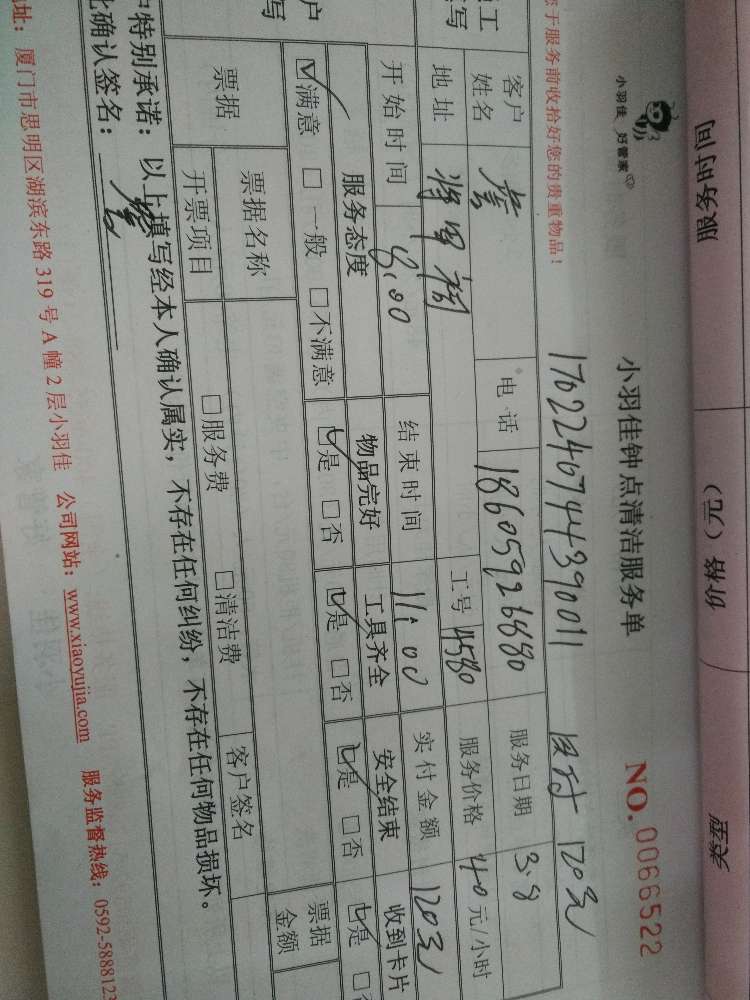 服务时间 价格（元） 类型
小羽佳 好管家
小羽佳钟点清洁服务单 NO.0066522
您于服务前收拾好您的贵重物品！ 1702240744390011 120元
客户姓名 电话 18605926880 服务日期 3.8
地址 工号 4580 服务价格 40元/小时
开始时间 8:00 结束时间 11:00 实付金额 120元
服务态度 物品完好 工具齐全 安全结束 收到卡片
☑满意 □一般 □不满意 ☑是 □否 ☑是 □否 ☑是 □否 ☑是
票据 票据名称 票据金额
开票项目 □服务费 □清洁费 客户签名
户特别承诺：以上填写经本人确认属实，不存在任何纠纷，不存在任何物品损坏。
此确认签名：
址：厦门市思明区湖滨东路 319 号 A 幢 2 层小羽佳 公司网站：www.xiaoyujia.com 服务监督热线：0592-5888123